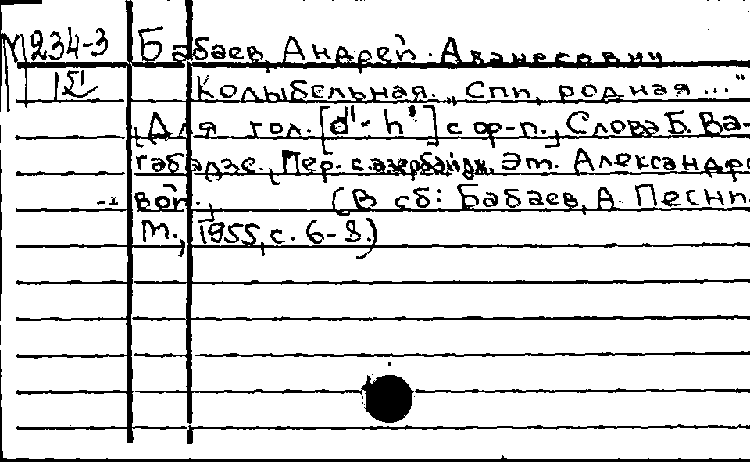 М234-3 Бабаев, Андрей Аванесович
15 Колыбельная. „Спи, родная..."
Для гол. [d'- h'] с ор-п., Слова Б. Ва-
габадзе., Пер. с азербайдж. Эт. Александро-
вой., (В сб: Бабаев, А. Песни.
М., 1955, с. 6-8.)